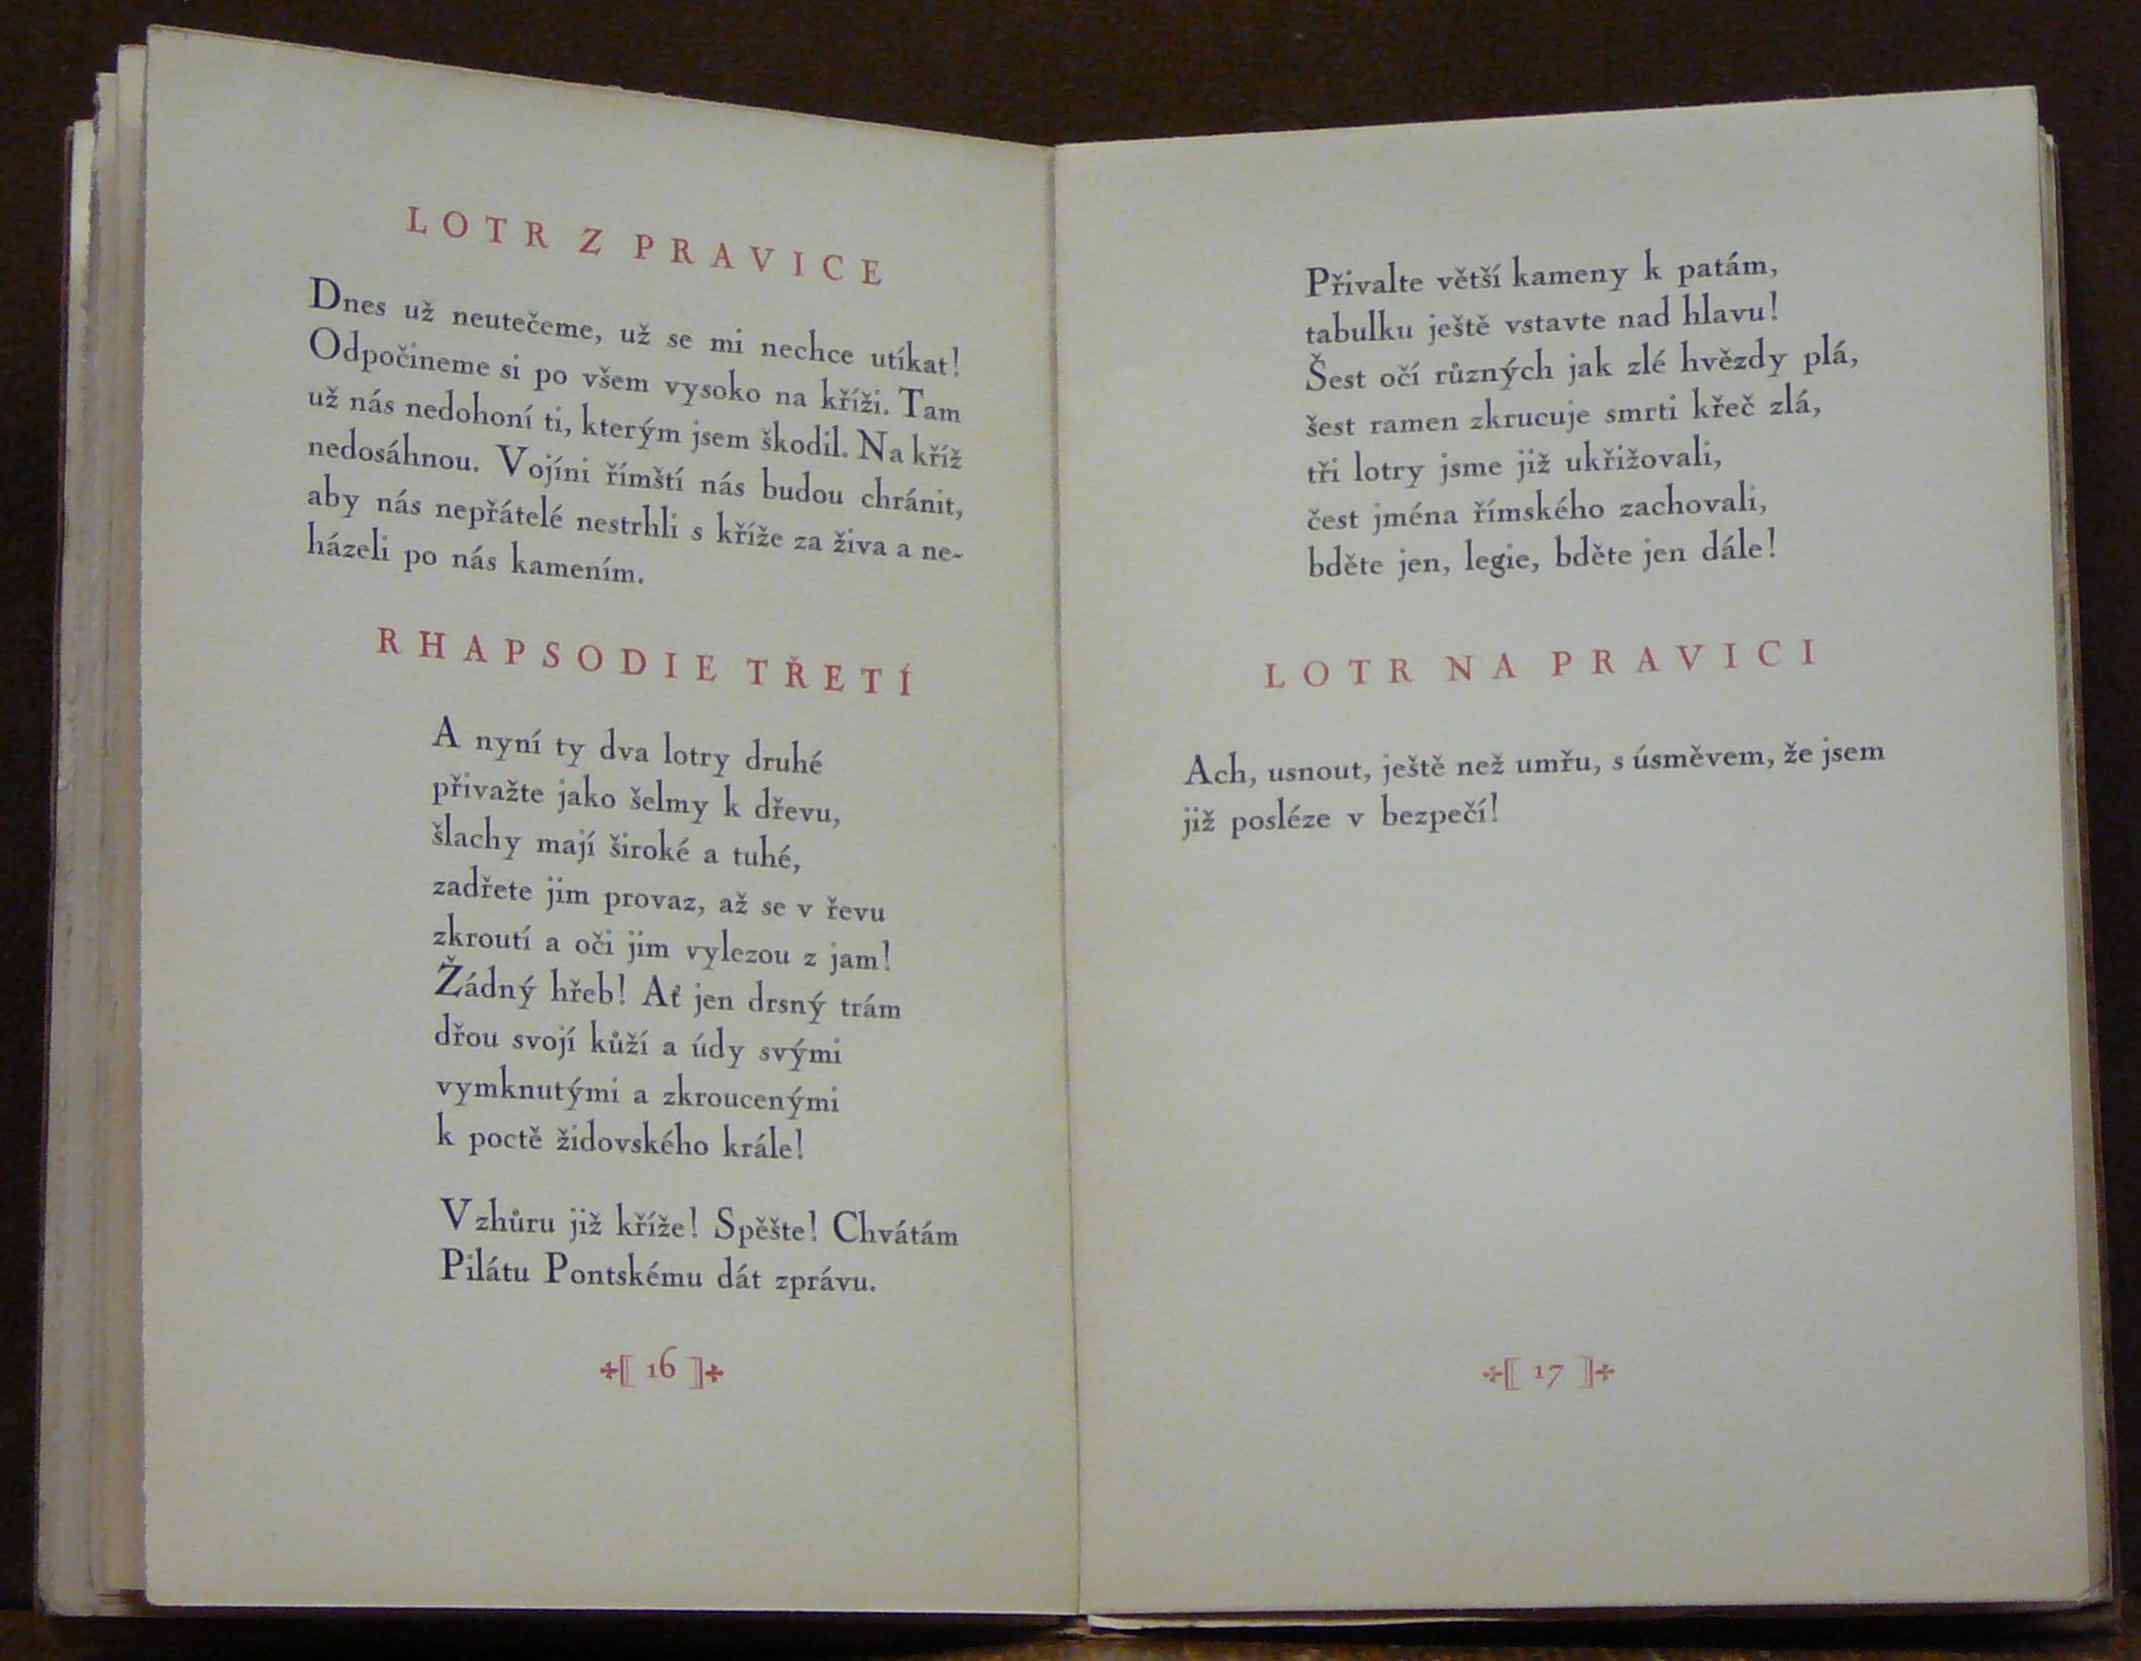 LOTR Z PRAVICE
Dnes už neutečeme, už se mi nechce utíkat!
Odpočineme si po všem vysoko na kříži. Tam
už nás nedohoní ti, kterým jsem škodil. Na kříž
nedosáhnou. Vojíni římští nás budou chránit,
aby nás nepřátelé nestrhli s kříže za živa a ne-
házeli po nás kamením.
RHAPSODIE TŘETÍ
A nyní ty dva lotry druhé
přivažte jako šelmy k dřevu,
šlachy mají široké a tuhé,
zadřete jim provaz, až se v řevu
zkroutí a oči jim vylezou z jam!
Žádný hřeb! Ať jen drsný trám
dřou svojí kůží a údy svými
vymknutými a zkroucenými
k poctě židovského krále!
Vzhůru již kříže! Spěšte! Chvátám
Pilátu Pontskému dát zprávu.
16
Přivalte větší kameny k patám,
tabulku ještě vstavte nad hlavu!
Šest očí různých jak zlé hvězdy plá,
šest ramen zkrucuje smrti křeč zlá,
tři lotry jsme již ukřižovali,
čest jména římského zachovali,
bděte jen, legie, bděte jen dále!
LOTR NA PRAVICI
Ach, usnout, ještě než umřu, s úsměvem, že jsem
již posléze v bezpečí!
17